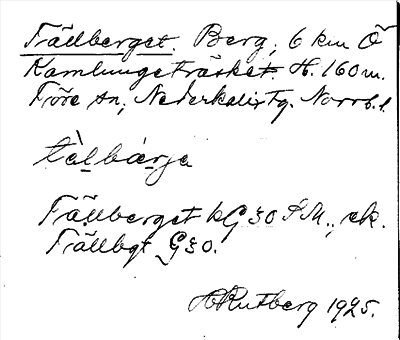 Trällberget. Berg, 6 km Ö
Kamlungeträsket. H. 160 m.
Töre sn, Nederkalix Tg. Norrb. l.
tàlbárja
Trällberget kG 30 S. M., ek.
Trällbgt G 30.
H Rutberg 1925.